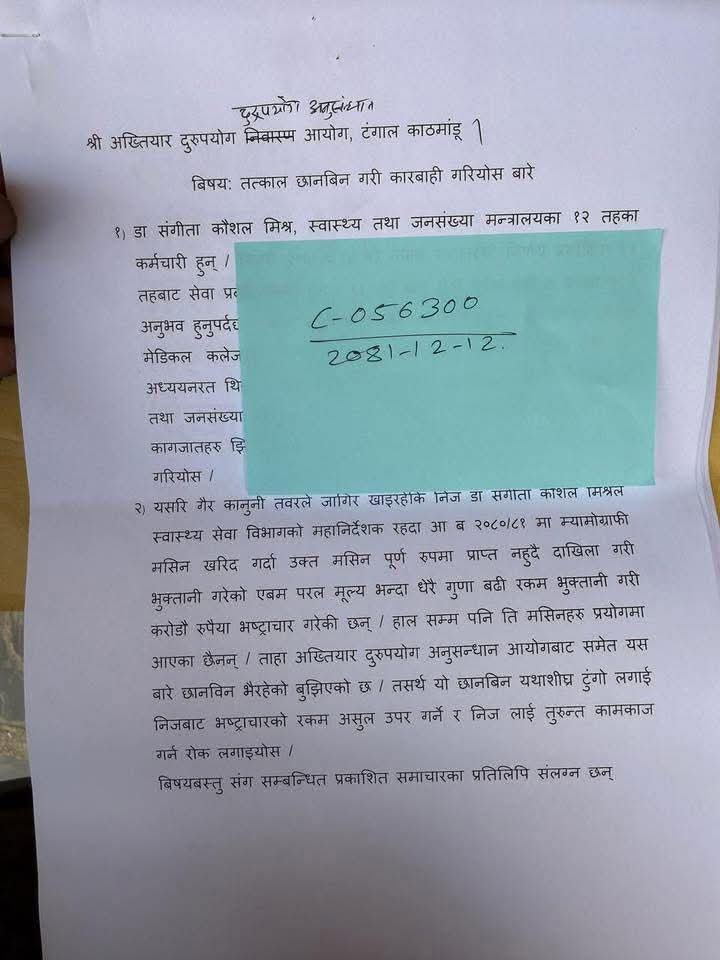 दुरुपयोग अनुसंधान
श्री अख्तियार दुरुपयोग निवारण आयोग, टंगाल काठमांडू ।
बिषय: तत्काल छानबिन गरी कारबाही गरियोस बारे
१) डा संगीता कौशल मिश्र, स्वास्थ्य तथा जनसंख्या मन्त्रालयका १२ तहका
कर्मचारी हुन् ।
तहबाट सेवा
अनुभव
मेडिकल
अध्ययनरत
तथा जनसंख्या
कागजातहरु
गरियोस ।
C-056300
2081-12-12.
२) यसरि गैर कानुनी तवरले जागिर खाइरहेकि निज डा संगीता कौशल मिश्रले
स्वास्थ्य सेवा विभागको महानिर्देशक रहदा आ ब २०८०/८१ मा म्यामोग्राफी
मसिन खरिद गर्दा उक्त मसिन पूर्ण रुपमा प्राप्त नहुदै दाखिला गरी
भुक्तानी गरेको एबम परल मूल्य भन्दा धेरै गुणा बढी रकम भुक्तानी गरी
करोडौ रुपैया भष्ट्राचार गरेकी छन् । हाल सम्म पनि ति मसिनहरु प्रयोगमा
आएका छैनन् । ताहा अख्तियार दुरुपयोग अनुसन्धान आयोगबाट समेत यस
बारे छानविन भैरहेको बुझिएको छ । तसर्थ यो छानबिन यथाशीघ्र टुंगो लगाई
निजबाट भष्ट्राचारको रकम असुल उपर गर्ने र निज लाई तुरुन्त कामकाज
गर्न रोक लगाइयोस ।
बिषयबस्तु संग सम्बन्धित प्रकाशित समाचारका प्रतिलिपि संलग्न छन्